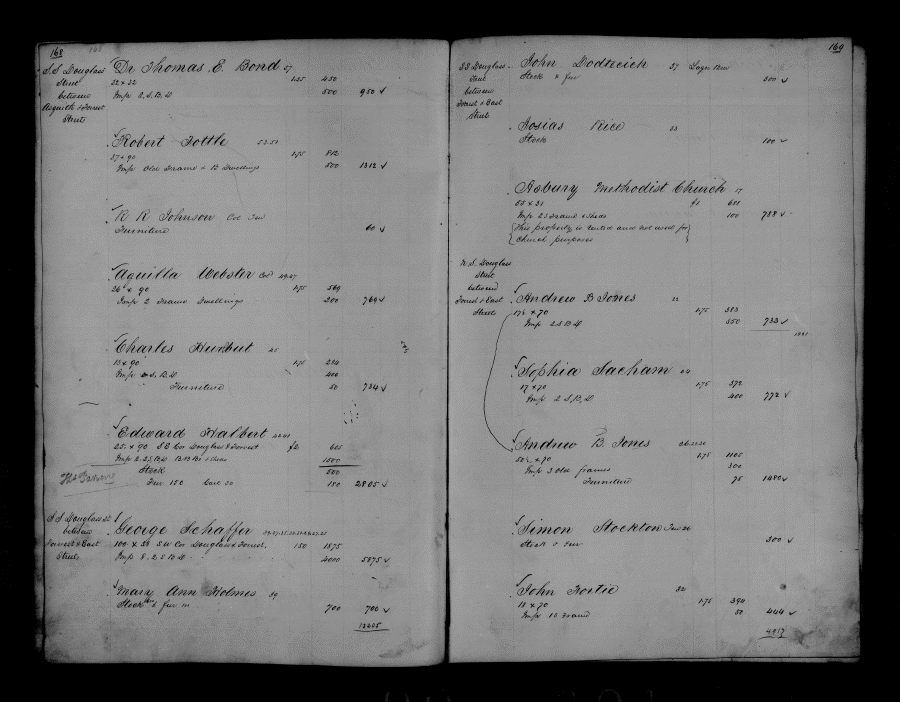 168
S S Douglass
Street
between
Asquith & Forrest
Streets
Dr Thomas E. Bond 57
22 x 22 450
Imp 2. S. B. D 500 950
Robert Tottle 53.51
37 x 90 175 812
Imp Old Frame & B Dwellings 500 1312
R R Johnson Col
Furniture 60
Aquilla Webster Col 49.47
26 x 90 175 569
Imp 2 Frame Dwellings 200 769
Charles Hurbut 45
13 x 90 175 284
Imp 2 S. B. D 400
Furniture 50 734
Edward Halbert
25 x 90 S E Cor Douglass & Forrest £2 625
Imp 2. 2 S. B. D. 1500
Stock 500
Fur 150 180 2805
S S Douglass
between
Forrest & East
Streets
George Schaffer
100 x 50 S W Cor Douglass & Forrest. 150 1875
Imp 8. 2 S B D 4000 5875
Mary Ann Holmes 39
Stock & fur 700 700
12205
169
S S Douglass
Street
between
Forrest & East
Streets
John Dodtreich 37
Stock & fur 300
Josias Rice 33
Stock 100
Asbury Methodist Church 17
£1 688
Imp 2 S Frame & Sheds 100 788
This property is rented and not used for
Church purposes
N. S. Douglass
Street
between
Forrest & East
Streets
Andrew B Jones 22
17½ x 70 175 383
Imp 2 S B D 350 733
Sophia Sacham
17 x 70 175 372
Imp 2 S. B. D 400 772
Andrew B. Jones
175 1105
Imp 3 Old frames 300
Furniture 75 1480
Simon Stockton
Stock & Fur 300
John Hortie 32
18 x 70 175 394
Imp 50 444
4917